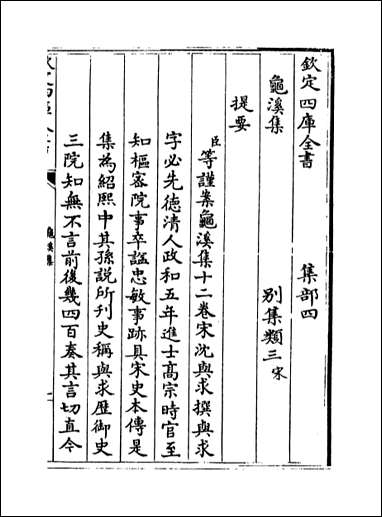 欽定四庫全書　集部四
龜溪集　別集類三宋
提要
臣等謹案龜溪集十二卷宋沈與求撰與求
字必先德清人政和五年進士髙宗時官至
知樞宻院事卒諡忠敏事跡具宋史本傳是
集為紹熙中其孫説所刊史稱與求歴御史
三院知無不言前後幾四百奏其言切直今
龜溪集